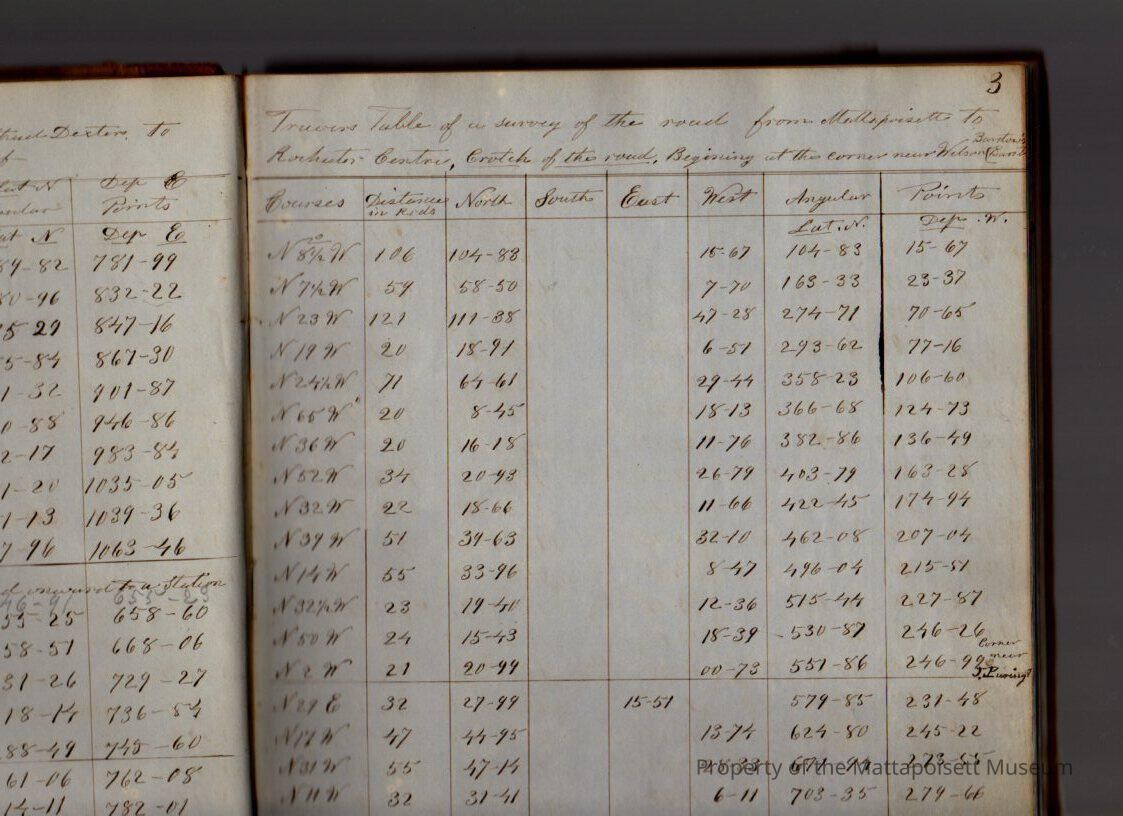 Dexter, to
Lat N Dep E
Angular Points
Lat N Dep E
89-82 781-99
80-96 832-22
15-29 847-16
5-84 867-30
1-32 901-87
0-88 946-86
2-17 983-84
1-20 1035-05
1-13 1039-36
7-96 1063-46
station
55-25 658-60
58-51 668-06
31-26 729-27
18-14 736-54
88-49 745-60
61-06 762-08
14-11 782-01
3
Travers Table of a survey of the road from Mattapoisett to
Rochester Centre, Crotch of the road, Begining at the corner near Wilson
Courses Distance in Rods North South East West Angular Points
Lat. N. Dep. W.
N 8½° W 106 104-83 15-67 104-83 15-67
N 7½ W 59 58-50 7-70 163-33 23-37
N 23 W 121 111-38 47-28 274-71 70-65
N 19 W 20 18-91 6-51 293-62 77-16
N 24½ W 71 64-61 29-44 358-23 106-60
N 65 W 20 8-45 18-13 366-68 124-73
N 36 W 20 16-18 11-76 382-86 136-49
N 52 W 34 20-93 26-79 403-79 163-28
N 32 W 22 18-66 11-66 422-45 174-94
N 39 W 51 39-63 32-10 462-08 207-04
N 14 W 55 33-96 8-47 496-04 215-51
N 32½ W 23 19-40 12-36 515-44 227-87
N 50 W 24 15-43 18-39 530-87 246-26
N 2 W 21 20-99 00-73 551-86 246-99 Corner near
N 29 E 32 27-99 15-51 579-85 231-48
N 17 W 47 44-95 13-74 624-80 245-22
N 31 W 55 47-14 273-55
N 11 W 32 31-41 6-11 703-35 279-66
Property of the Mattapoisett Museum